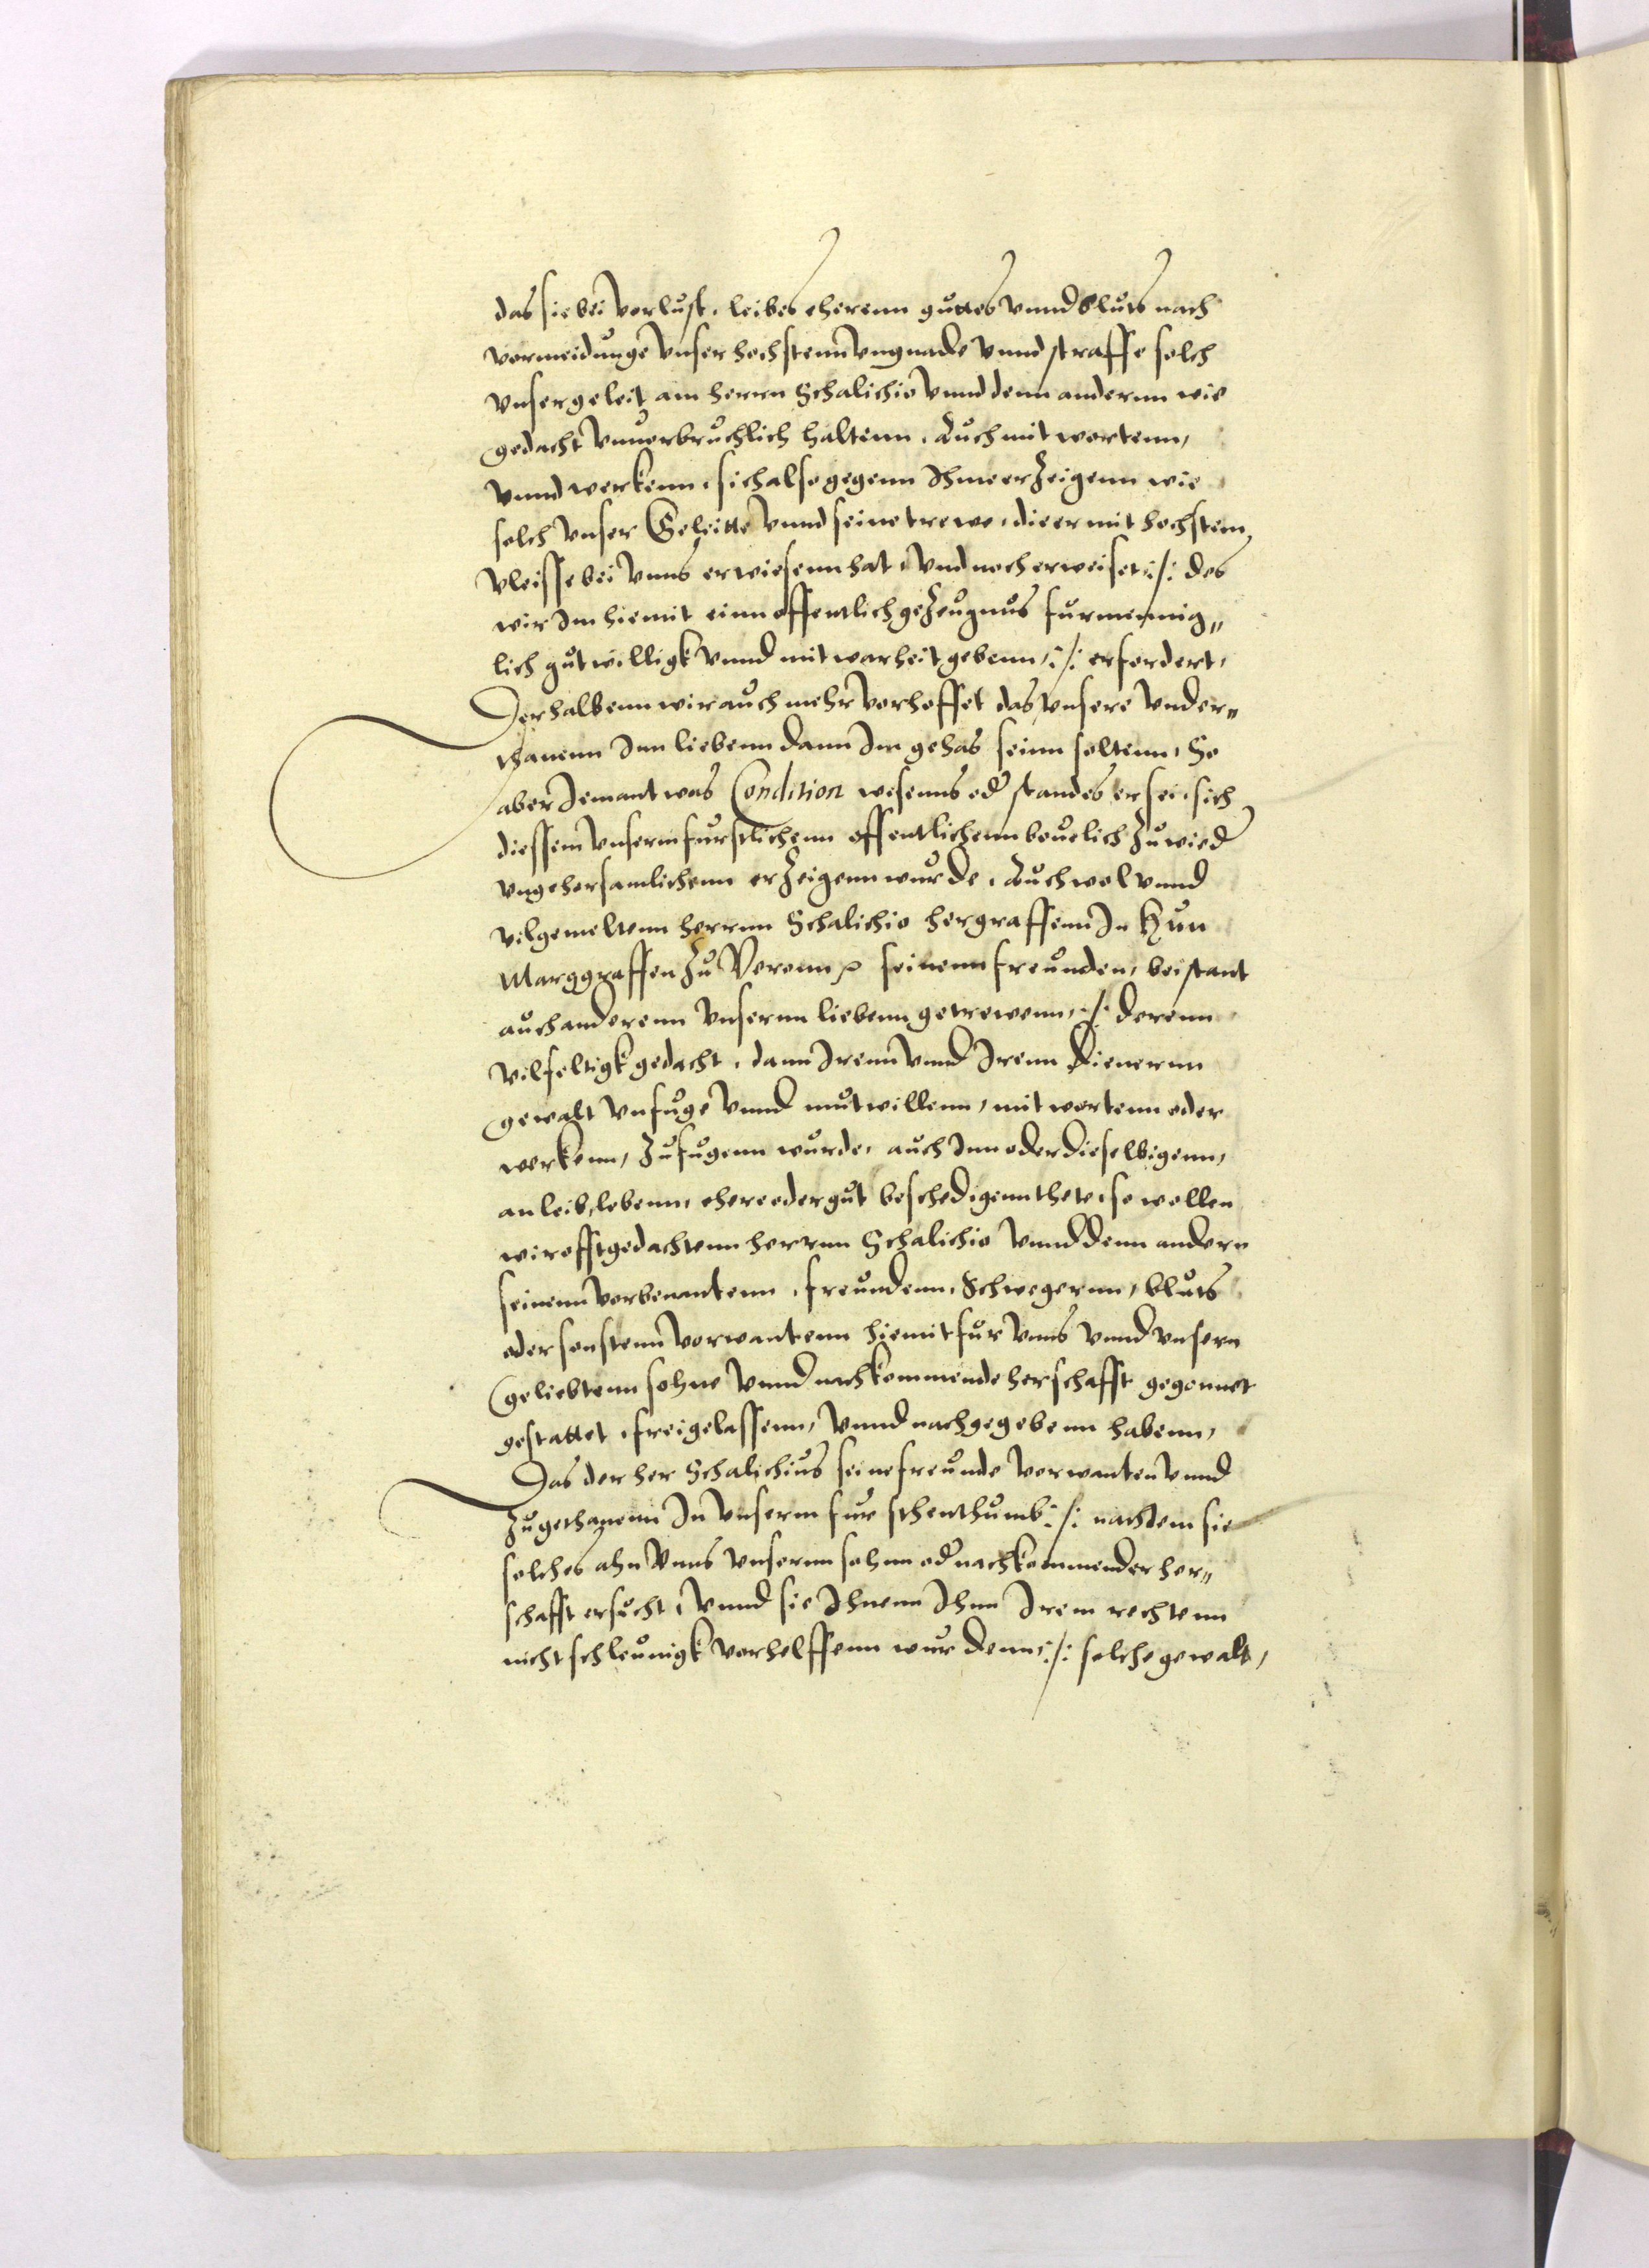 das sie bei vorlust, leibes eherenn guttes vnnd bluts nach
vormeidunge vnser hochstenn vngnade vnnd straffe solch
vnser geleit am herrn Schalichio vnnd denn andernn wie
gedacht vnuorbruchlich haltenn, Auch mit wortenn,
vnnd werkenn, sich also gegenn Ihme erzeigenn wie
solch vnser Geleitte vnnd seine trewe, die er mit hochstem
vleisse bei vnns erwiesenn hat, vnd noch erweiset :/: des
wir Im hiemit einn offentlich gezeugnus fur mennig„
lich gutwilligk vnnd mit warheit gebenn, :/: erfordert,
Derhalbenn wir auch mehr vorhoffet das vnsere vnder„
thanenn Inn liebenn dann Im gehas seinn soltenn, So
aber Jemant was Condition wesenns oder standes er sei, sich
diessem vnserm furstlichenn offentlichenn beuelich zuwieder
vngehorsamlichenn erzeigenn wurde, Auch wol vnnd
vilgemeltenn herrnn Schalichio hergraffenn In Hun
Marggraffen zu Veronn seinenn freunden, beistant
auch anderenn vnsernn liebenn getrewenn, :/: derenn
vilfeltigk gedacht, dann Irenn vnnd Irenn Dienernn
gewalt vnfuge vnnd mutwillenn, mit wortenn oder
werkenn, zufugenn wurde, auch Inn oder dieselbigenn,
an leib, lebenn, ehere oder gut beschedigenn thete, so wollen
wir offtgedachtenn herrnn Schalichio vnnd denn andern
seinenn vorbenantenn, freundenn, Schwegernn, bluts
oder sonstenn vorwantenn hiemit fur vnns vnnd vnsern
geliebtenn sohne vnnd nachkommende herschafft gegonnet
gestattet, freigelassenn, vnnd nachgegebenn habenn,
Das der her Schalichius seine freunde vorwanten vnnd
zugethanenn In vnserm fursthenthumb :/: nachdem sie
solches ahn vnns vnsernn sohnn oder nachkommender her„
schafft ersucht, vnnd sie Ihnenn Ihnn Irem rechtenn
nicht schleunigk vorhelffenn wurdenn :/: solche gewalt,